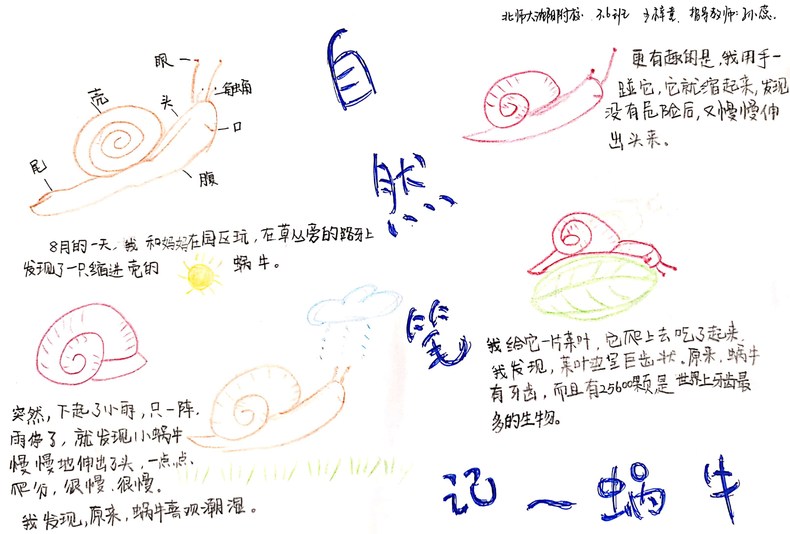 自
然
笔
记 ~ 蜗牛
3.6班
指导教师:孙蕊
眼
触角
壳
头
口
尾
腹
8月的一天,我和妈妈在园区玩,在草丛旁的路牙上
发现了一只缩进壳的 蜗牛。
突然,下起了小雨,只一阵.
雨停了,就发现小蜗牛
慢慢地伸出了头,一点点、
爬行,很慢、很慢。
我发现,原来,蜗牛喜欢潮湿。
更有趣的是,我用手一
碰它,它就缩起来,发现
没有危险后,又慢慢伸
出头来。
我给它一片菜叶,它爬上去吃了起来,
我发现,菜叶边呈巨齿状。原来,蜗牛
有牙齿,而且有25600颗是世界上牙齿最
多的生物。